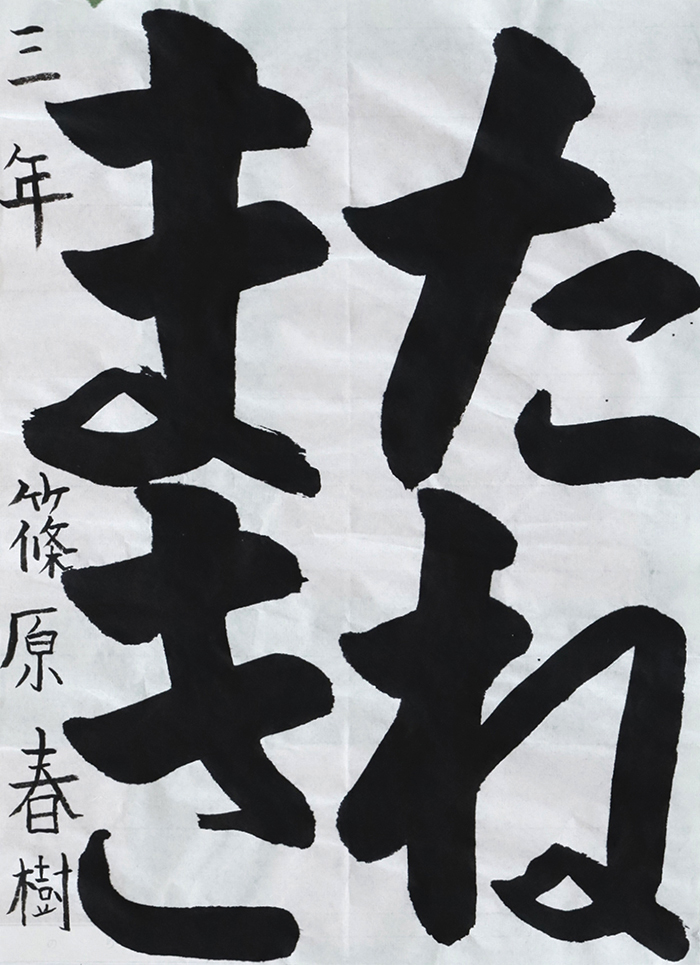 たね
まき
三年 篠原春樹